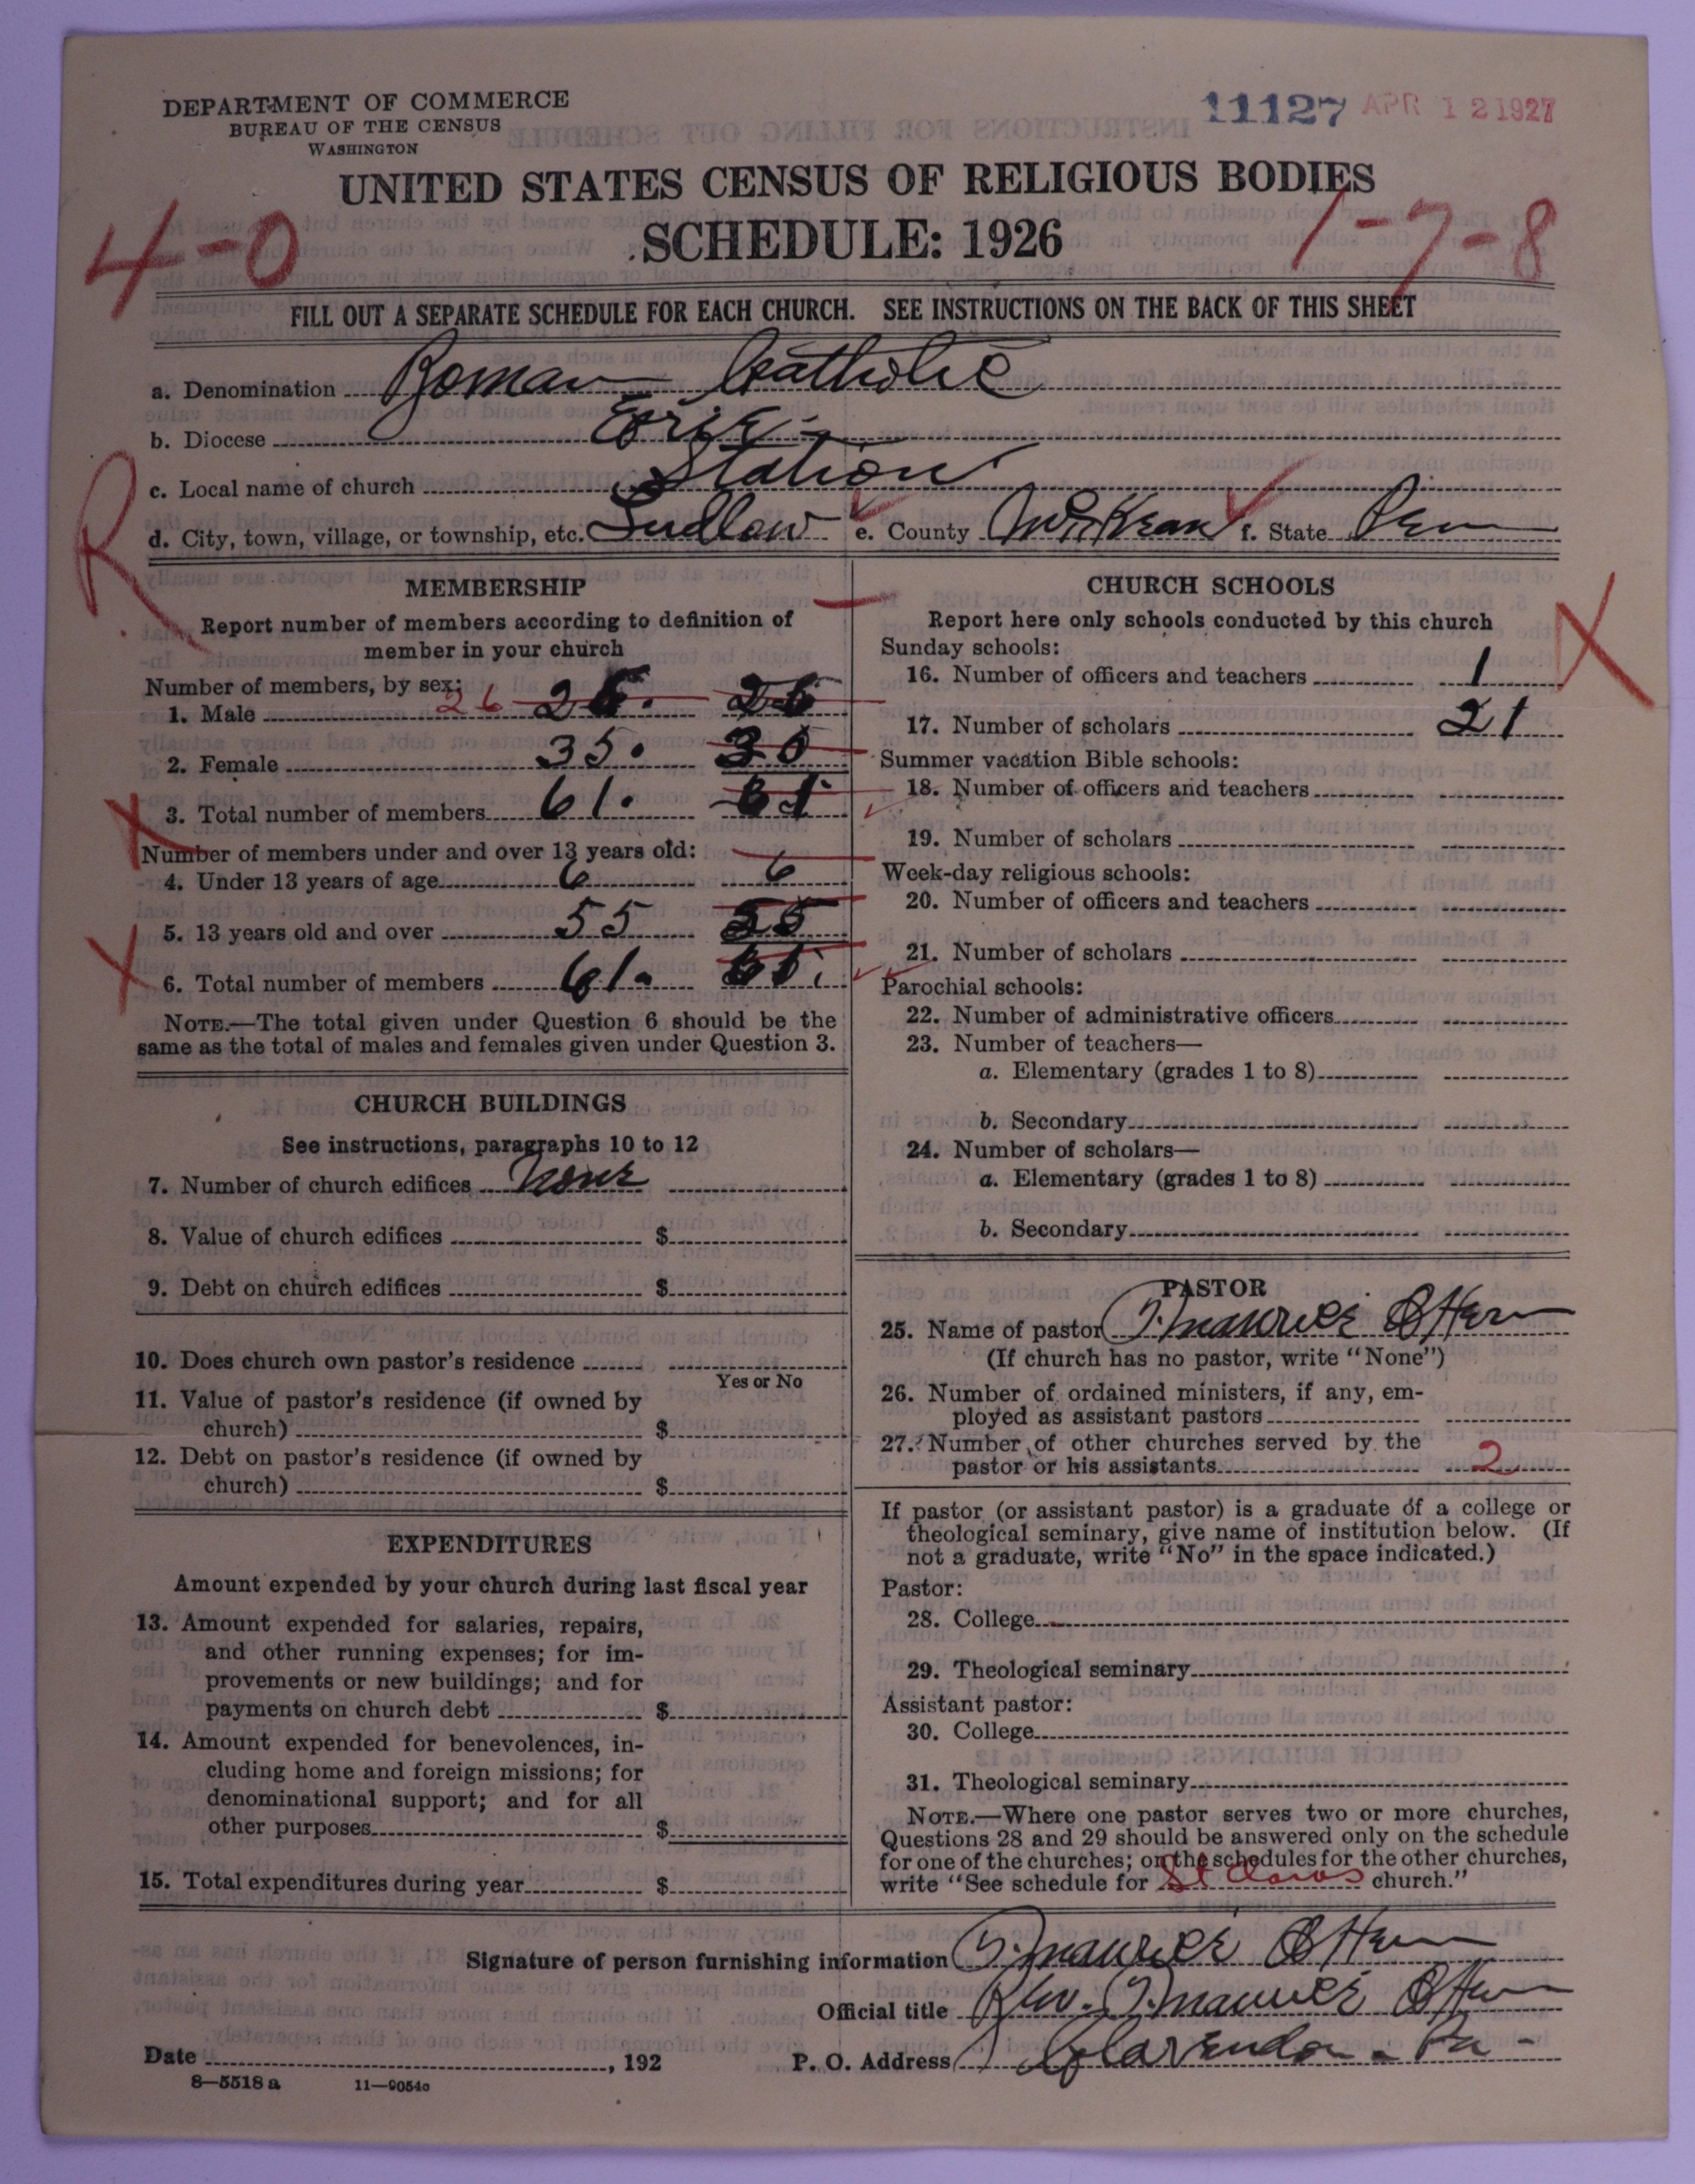 DEPARTMENT OF COMMERCE
BUREAU OF THE CENSUS
WASHINGTON
11127 APR 12 1927
UNITED STATES CENSUS OF RELIGIOUS BODIES
SCHEDULE: 1926
4-0
1-7-8
FILL OUT A SEPARATE SCHEDULE FOR EACH CHURCH. SEE INSTRUCTIONS ON THE BACK OF THIS SHEET
a. Denomination Roman Catholic
b. Diocese Erie
c. Local name of church Station
d. City, town, village, or township, etc. Ludlow e. County McKean f. State Pen
R
MEMBERSHIP
Report number of members according to definition of
member in your church
Number of members, by sex:
1. Male 26 26. 26
2. Female 35. 30
3. Total number of members 61. 61
Number of members under and over 13 years old:
4. Under 13 years of age 6 6
5. 13 years old and over 55 55
6. Total number of members 61. 61.
NOTE.—The total given under Question 6 should be the
same as the total of males and females given under Question 3.
CHURCH BUILDINGS
See instructions, paragraphs 10 to 12
7. Number of church edifices None
8. Value of church edifices $
9. Debt on church edifices $
10. Does church own pastor's residence
Yes or No
11. Value of pastor's residence (if owned by
church) $
12. Debt on pastor's residence (if owned by
church) $
EXPENDITURES
Amount expended by your church during last fiscal year
13. Amount expended for salaries, repairs,
and other running expenses; for im-
provements or new buildings; and for
payments on church debt $
14. Amount expended for benevolences, in-
cluding home and foreign missions; for
denominational support; and for all
other purposes $
15. Total expenditures during year $
CHURCH SCHOOLS
Report here only schools conducted by this church
Sunday schools:
16. Number of officers and teachers 1
17. Number of scholars 21
Summer vacation Bible schools:
18. Number of officers and teachers
19. Number of scholars
Week-day religious schools:
20. Number of officers and teachers
21. Number of scholars
Parochial schools:
22. Number of administrative officers
23. Number of teachers—
a. Elementary (grades 1 to 8)
b. Secondary
24. Number of scholars—
a. Elementary (grades 1 to 8)
b. Secondary
PASTOR
25. Name of pastor
(If church has no pastor, write "None")
26. Number of ordained ministers, if any, em-
ployed as assistant pastors
27. Number of other churches served by the
pastor or his assistants 2
If pastor (or assistant pastor) is a graduate of a college or
theological seminary, give name of institution below. (If
not a graduate, write "No" in the space indicated.)
Pastor:
28. College
29. Theological seminary
Assistant pastor:
30. College
31. Theological seminary
NOTE.—Where one pastor serves two or more churches,
Questions 28 and 29 should be answered only on the schedule
for one of the churches; on the schedules for the other churches,
write "See schedule for St Claras church."
Signature of person furnishing information
Official title Rev.
Date , 192 P. O. Address Clarendon - Pa -
8—5518 a 11—9054c